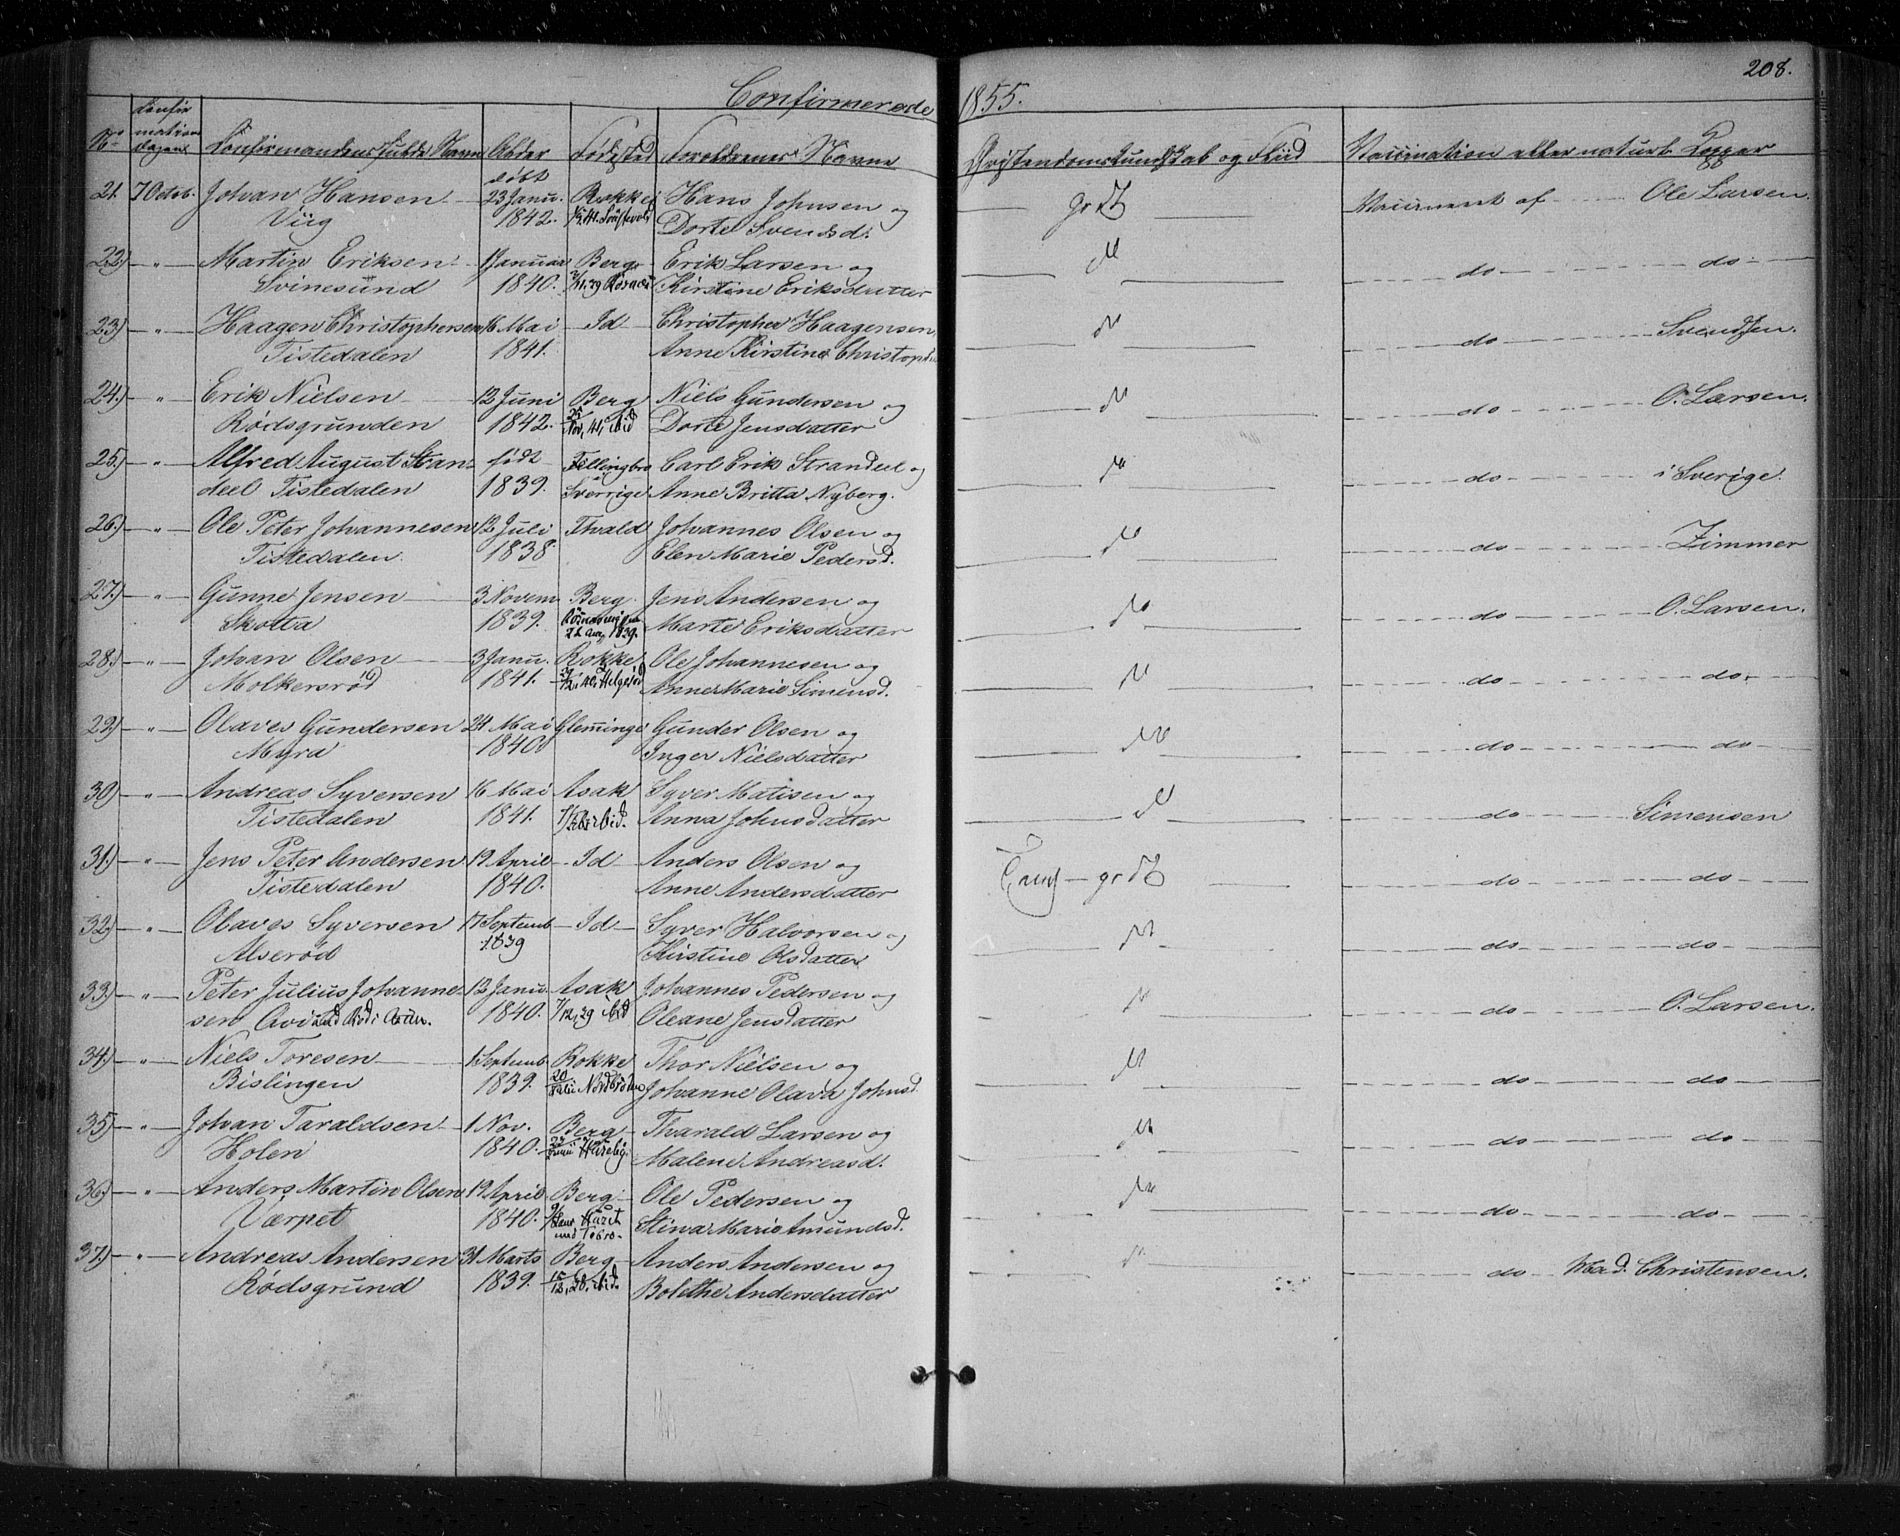 208.
Confirmerede 1855.
No Confirmations dagen Confirmandens fulde Navn Alder Fødested Forældrenes Navne Christendomskundskab og Flid Vaccination eller naturl. Kopper
21. 7 Octob. Johan Hansen født 23 Janu. Rokke Hans Johnsen og Vaccineret af Ole Larsen.
Viig 1842. Dorte Svendsd.
22) " Martin Eriksen 1 Januar Berg Erik Larsen og do do
Svinesund 1840. Kirstine Eriksdatter
23) " Haagen Christophersen 16 Mai Id Christopher Haagensen do Svendsen.
Tistedalen 1841. Anne Kirstine Christoph
24.) " Erik Nielsen 12 Juni Berg Niels Gundersen og do O. Larsen.
Rødsgrunden 1842. 25 Nov, 41, ibid Dorte Jensdatter
25.) " Alfred August Stran- født Fellingbro Carl Erik Strandeel og do i Sverige.
deel Tistedalen 1839. Sverrige Anne Britta Nyberg.
26.) " Ole Peter Johannesen 12 Juli Hvald Johannes Olsen og do Zimmer
Tistedalen. 1838 Elen Marie Pedersd.
27.) " Gunne Jensen 3 Novem Berg Jens Andersen og do O. Larsen.
Skotta 1839. Marte Eriksdatter
28.) " Johan Olsen 3 Janu. Rokke Ole Johannesen og do do
Molkersrød 1841. Helgerød Anne Marie Simensd.
29) " Olaves Gundersen 24 Mai Glemminge Gunder Olsen og do do
Myra 1840 Inger Nielsdatter
30) " Andreas Syversen 16 Mai Asak Syver Matisen og do Simensen
Tistedalen 1841. Anna Johnsdatter
31.) " Jens Peter Andersen 19 April Id Anders Olsen og do do
Tistedalen 1840. Anne Andersdatter
32.) " Olaves Syversen 17 Septemb Id Syver Halvorsen og do do
Alserød 1839 Kirstine Olsdatter
33.) " Peter Julius Johanne- 12 Janu. Asak Johannes Pedersen og do O. Larsen.
sen 1840. Oleane Jensdatter
34) " Niels Toresen 1 Septemb Rokke Thor Nielsen og do do
Bislingen 1839. Johanne Olava Johnsd.
35) " Johan Taraldsen 1 Nov. Berg Tharald Larsen og do do
Holen 1840. Malene Andreasd.
36.) " Anders Martin Olsen 19 April Berg Ole Pedersen og do do
Værpet 1840. Stina Marie Amundsd.
37.) " Andreas Andersen 31 Marts Berg Anders Andersen og do Mad. Christensen.
Rødsgrund 1839. Bolethe Andersdatter